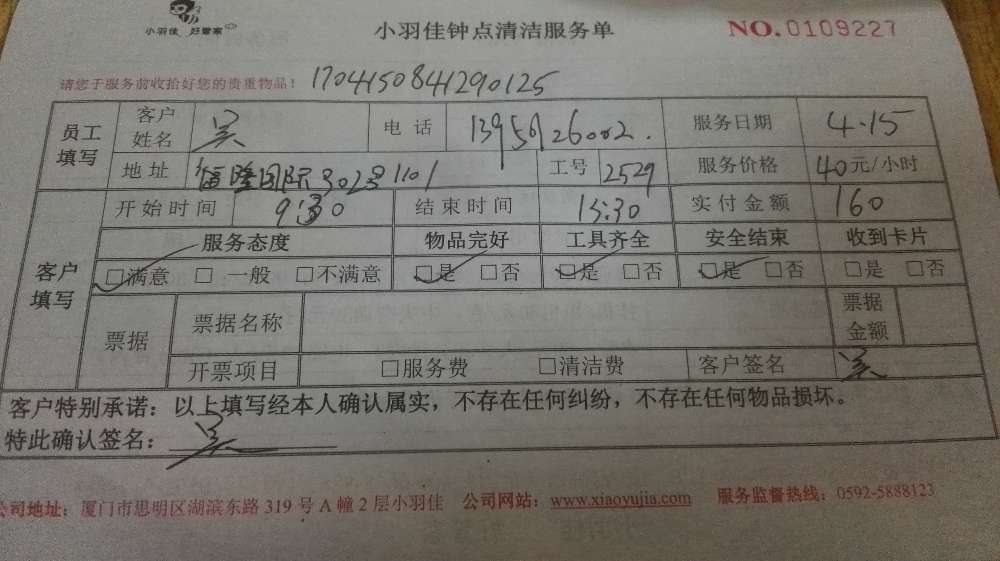 小羽佳 好管家
小羽佳钟点清洁服务单
NO.0109227
请您于服务前收拾好您的贵重物品!
1704150841290125
员工填写 客户姓名 吴 电话 服务日期 4.15
地址 福隆国际302号1101 工号 2529 服务价格 40元/小时
开始时间 9:30 结束时间 13:30 实付金额 160
客户填写 服务态度 物品完好 工具齐全 安全结束 收到卡片
☑满意 □一般 □不满意 ☑是 □否 ☑是 □否 ☑是 □否 □是 □否
票据 票据名称 票据金额
开票项目 □服务费 □清洁费 客户签名 吴
客户特别承诺:以上填写经本人确认属实,不存在任何纠纷,不存在任何物品损坏。
特此确认签名: 吴
公司地址:厦门市思明区湖滨东路319号A幢2层小羽佳 公司网站:www.xiaoyujia.com 服务监督热线:0592-5888123